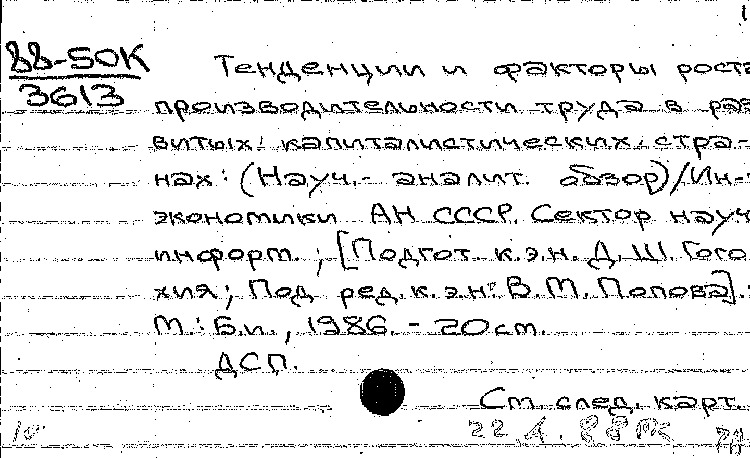 1
88-50К
3613
Тенденции и факторы роста
производительности труда в раз
витых капиталистических стра-
нах: (Науч.-аналит. обзор)/Ин-т
экономики АН СССР. Сектор науч.
информ.; [Подгот. к.э.н. Д.Ш. Гого
хия; Под ред. к.э.н. В.М. Попова].-
М.: Б.и., 1986. - 20 см.
ДСП.
См. след. карт.
22.4.88